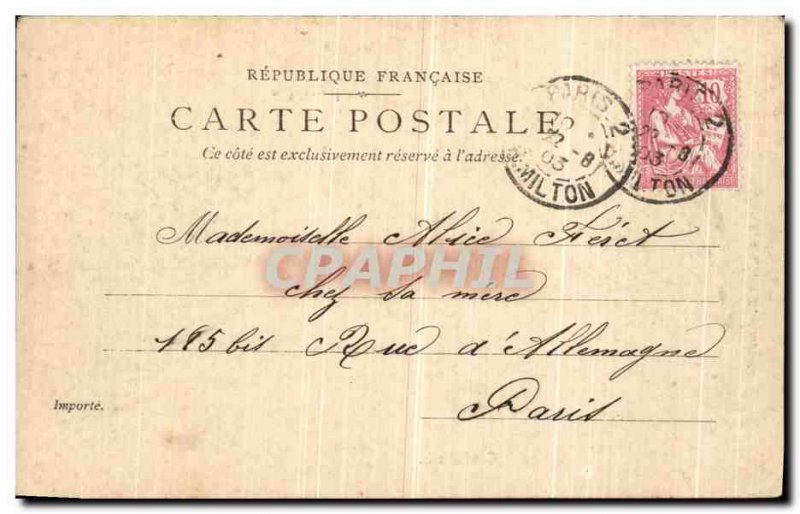 RÉPUBLIQUE FRANÇAISE
CARTE POSTALE
Ce côté est exclusivement réservé à l'adresse.
PARIS 2
22 -8
03
R. MILTON
PARIS 2
22 -8
03
MILTON
10
Mademoiselle Alice Féret
CPAPHIL
chez sa mère
195 bis Rue d'Allemagne
Paris
Importé.